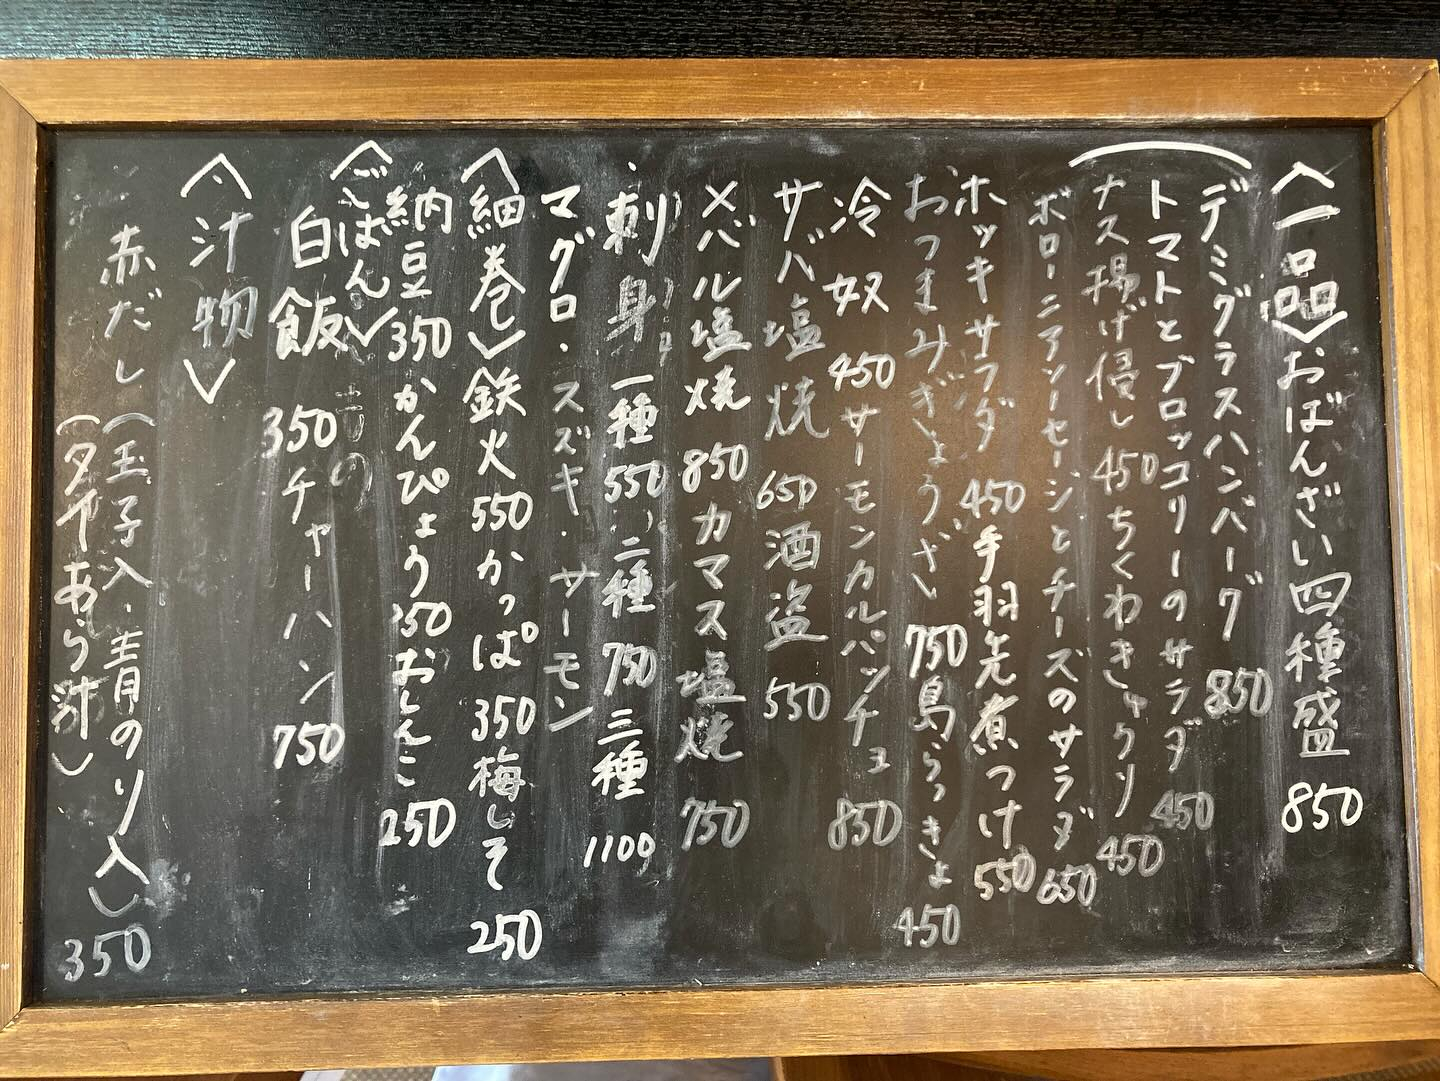 〈一品〉おばんざい四種盛 850
デミグラスハンバーグ 850
トマトとブロッコリーのサラダ 450
ナス揚げ浸し 450 ちくわきゅうり 450
ボローニアソーセージとチーズのサラダ 650
ホッキサラダ 450 手羽先煮つけ 550
おつまみぎょうざ 750 島らっきょ 450
冷奴 450 サーモンカルパッチョ 850
サバ塩焼 650 酒盗 550
メバル塩焼 850 カマス塩焼 750
刺身 一種 550 二種 750 三種 1100
マグロ・スズキ・サーモン
〈細巻〉鉄火 550 かっぱ 350 梅しそ 250
納豆 350 かんぴょう 350 おしんこ 250
〈ごはん〉
白飯 350 チャーハン 750
〈汁物〉
赤だし(玉子入・青のり入) 350
(タヤあら汁)